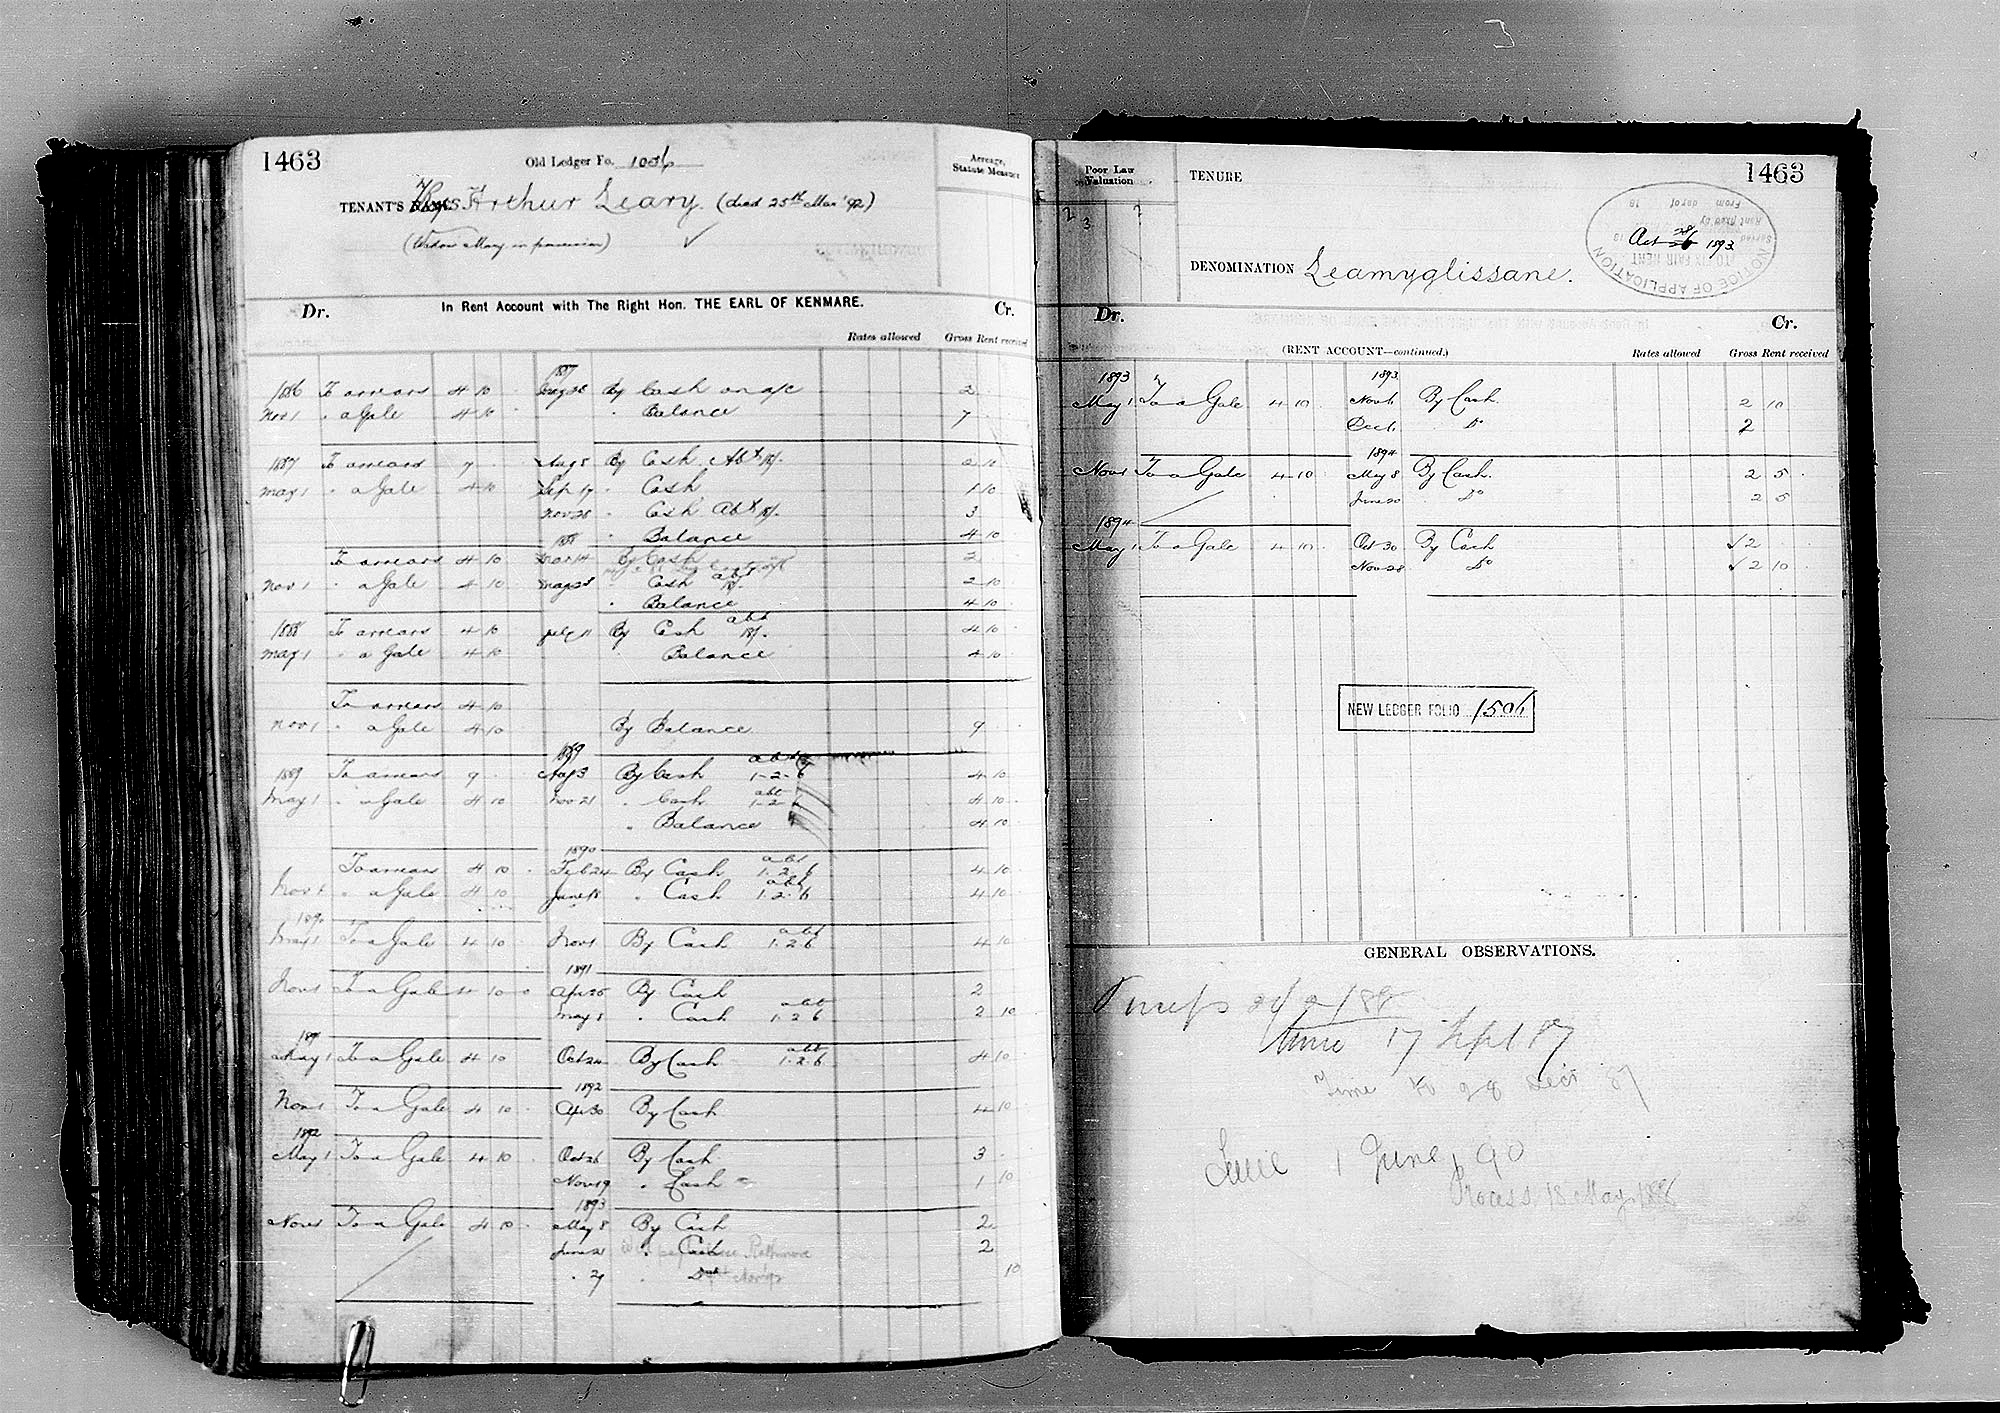 1463
Old Ledger Fo. 1006
Acreage, Statute Measure
TENANT'S NAME Arthur Leary. (died 25th Mar '92)
(Widow Mary in possession)
In Rent Account with The Right Hon. THE EARL OF KENMARE.
Dr. Cr.
Rates allowed Gross Rent received
1887
1886 To arrears 4 10 May 28 By Cash on a/c 2
Nov 1 " a Gale 4 10 " Balance 7
1887 To arrears 7 Aug 5 By Cash Abt 10/. 2 10
May 1 " a Gale 4 10 Sep 17 " Cash 1 10
Nov 28 " Cash Abt 10/. 3
1888 " Balance 4 10
To arrears 4 10 Mar 14 By Cash 2
Nov 1 " a Gale 4 10 May 28 Cash abt 10/. 2 10
" Balance 4 10
1888 To arrears 4 10 July 11 By Cash abt 18/. 4 10
May 1 " a Gale 4 10 Balance 4 10
To arrears 4 10
Nov 1 " a Gale 4 10 By Balance 9
1889
1889 To arrears 9 Aug 3 By Cash abt 1-2-6 4 10
May 1 " a Gale 4 10 Nov 21 " Cash abt 1-2-6 4 10
" Balance 4 10
1890
To arrears 4 10 Feb 24 By Cash abt 1.2.6 4 10
Nov 1 " a Gale 4 10 June 18 " Cash abt 1.2.6 4 10
1890
May 1 To a Gale 4 10 Nov 1 By Cash abt 1.2.6 4 10
1891
Nov 1 To a Gale 4 10 0 Apr 25 By Cash 2
May 8 " Cash abt 1.2.6 2 10
1891
May 1 To a Gale 4 10 Oct 24 By Cash abt 1.2.6 4 10
1892
Nov 1 To a Gale 4 10 Apr 30 By Cash 4 10
1892
May 1 To a Gale 4 10 Oct 26 By Cash 3
Nov 19 " Cash 1 10
1893
Nov 1 To a Gale 4 10 May 8 By Cash 2
June 21 " Cash 2
" 29 " Do 10
Poor Law Valuation
TENURE
1463
NOTICE OF APPLICATION
TO FIX FAIR RENT
Served 18
Rent fixed by
From day of 18
Oct 26 28 1893
DENOMINATION Leamyglissane.
Dr. Cr.
(RENT ACCOUNT—continued.) Rates allowed Gross Rent received
1893 1893
May 1 To a Gale 4 10 Nov 6 By Cash 2 10
Dec 1 Do 2
1894
Nov 1 To a Gale 4 10 May 8 By Cash. 2 5
June 20 Do 2 5
1894
May 1 To a Gale 4 10 Oct 30 By Cash √2
Nov 28 Do √2 10
NEW LEDGER FOLIO 1506
GENERAL OBSERVATIONS.
Time 17 Sept 87
Time to 28 Decr 87
1 June 90
Process 18 May 1888